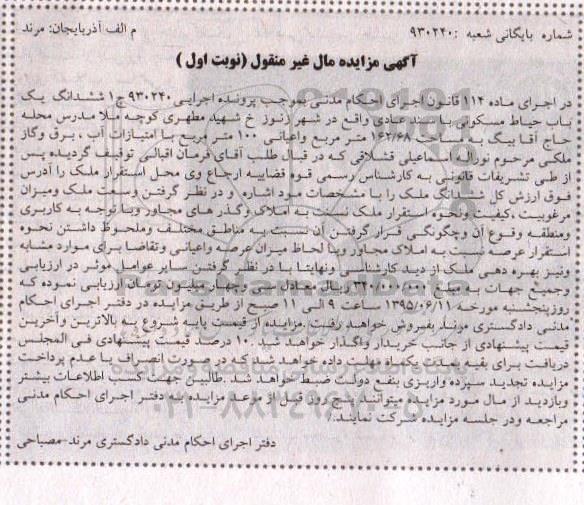 شماره بایگانی شعبه : ۹۳۰۲۴۰ م الف آذربایجان: مرند
آگهی مزایده مال غیر منقول (نوبت اول )
در اجرای ماده ۱۱۴ قانون اجرای احکام مدنی بموجب پرونده اجرایی ۹۳۰۲۴۰ ج۱ ششدانگ یک
باب حیاط مسکونی با سند عادی واقع در شهر زنوز خ شهید مطهری کوچه ملا مدرس محله
حاج آقا بیگ به مساحت ۱۶۲/۶۸ متر مربع واعیانی ۱۰۰ متر مربع با امتیازات آب ، برق وگاز
ملکی مرحوم نوراله اسماعیلی قشلاقی که در قبال طلب آقای فرمان اقبالی توقیف گردیده پس
از طی تشریفات قانونی به کارشناس رسمی قوه قضاییه ارجاع وی محل استقرار ملک را آدرس
فوق ارزش کل ششدانگ ملک را با مشخصات مد اشاره و در نظر گرفتن وسعت ملک ومیزان
مرغوبیت ،کیفیت ونحوه استقرار ملک نسبت به املاک وگذر های مجاور وبا توجه به کاربری
ومنطقه وقوع آن وچگونگی قرار گرفتن آن نسبت به مناطق مختلف وملحوظ داشتن نحوه
استقرار عرصه نسبت به املاک مجاور وبا لحاظ میزان عرصه واعیانی وتقاضا برای موارد مشابه
ونیز بهره دهی ملک از دید کارشناسی ونهایتا با در نظر گرفتن سایر عوامل موثر در ارزیابی
وجمیع جهات به مبلغ ۳۴۰/۰۰۰/۰۰۰ ریال معادل سی وچهار میلیون تومان ارزیابی نموده که
روزپنجشنبه مورخه ۱۳۹۵/۰۶/۱۱ ساعت ۹ الی ۱۱ صبح از طریق مزایده در دفتر اجرای احکام
مدنی دادگستری مرند بفروش خواهد رفت .مزایده از قیمت پایه شروع به بالاترین وآخرین
قیمت پیشنهادی از جانب خریدار واگذار خواهد شد .۱۰ درصد قیمت پیشنهادی فی المجلس
دریافت برای بقیه قیمت یکماه مهلت داده خواهد شد که در صورت انصراف یا عدم پرداخت
مزایده تجدید سپرده واریزی بنفع دولت ضبط خواهد شد .طالبین جهت کسب اطلاعات بیشتر
وبازدید از مال مورد مزایده میتوانند پنج روز قبل از موعد مزایده به دفتر اجرای احکام مدنی
مراجعه ودر جلسه مزایده شرکت نمایند./
دفتر اجرای احکام مدنی دادگستری مرند-مصباحی
۰۲۱-۸۸۳۴۹۶۷۰-۵